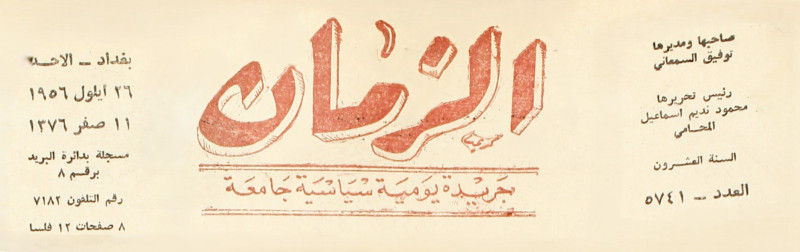 صاحبها ومديرها
توفيق السمعاني
رئيس تحريرها
محمود نديم اسماعيل
المحامي
السنة العشرون
العدد – ٥٧٤١
الزمان
جريدة يومية سياسية جامعة
بغداد – الاحد
٢٦ ايلول ١٩٥٦
١١ صفر ١٣٧٦
مسجلة بدائرة البريد
برقم ٨
رقم التلفون ٧١٨٢
٨ صفحات ١٢ فلسا